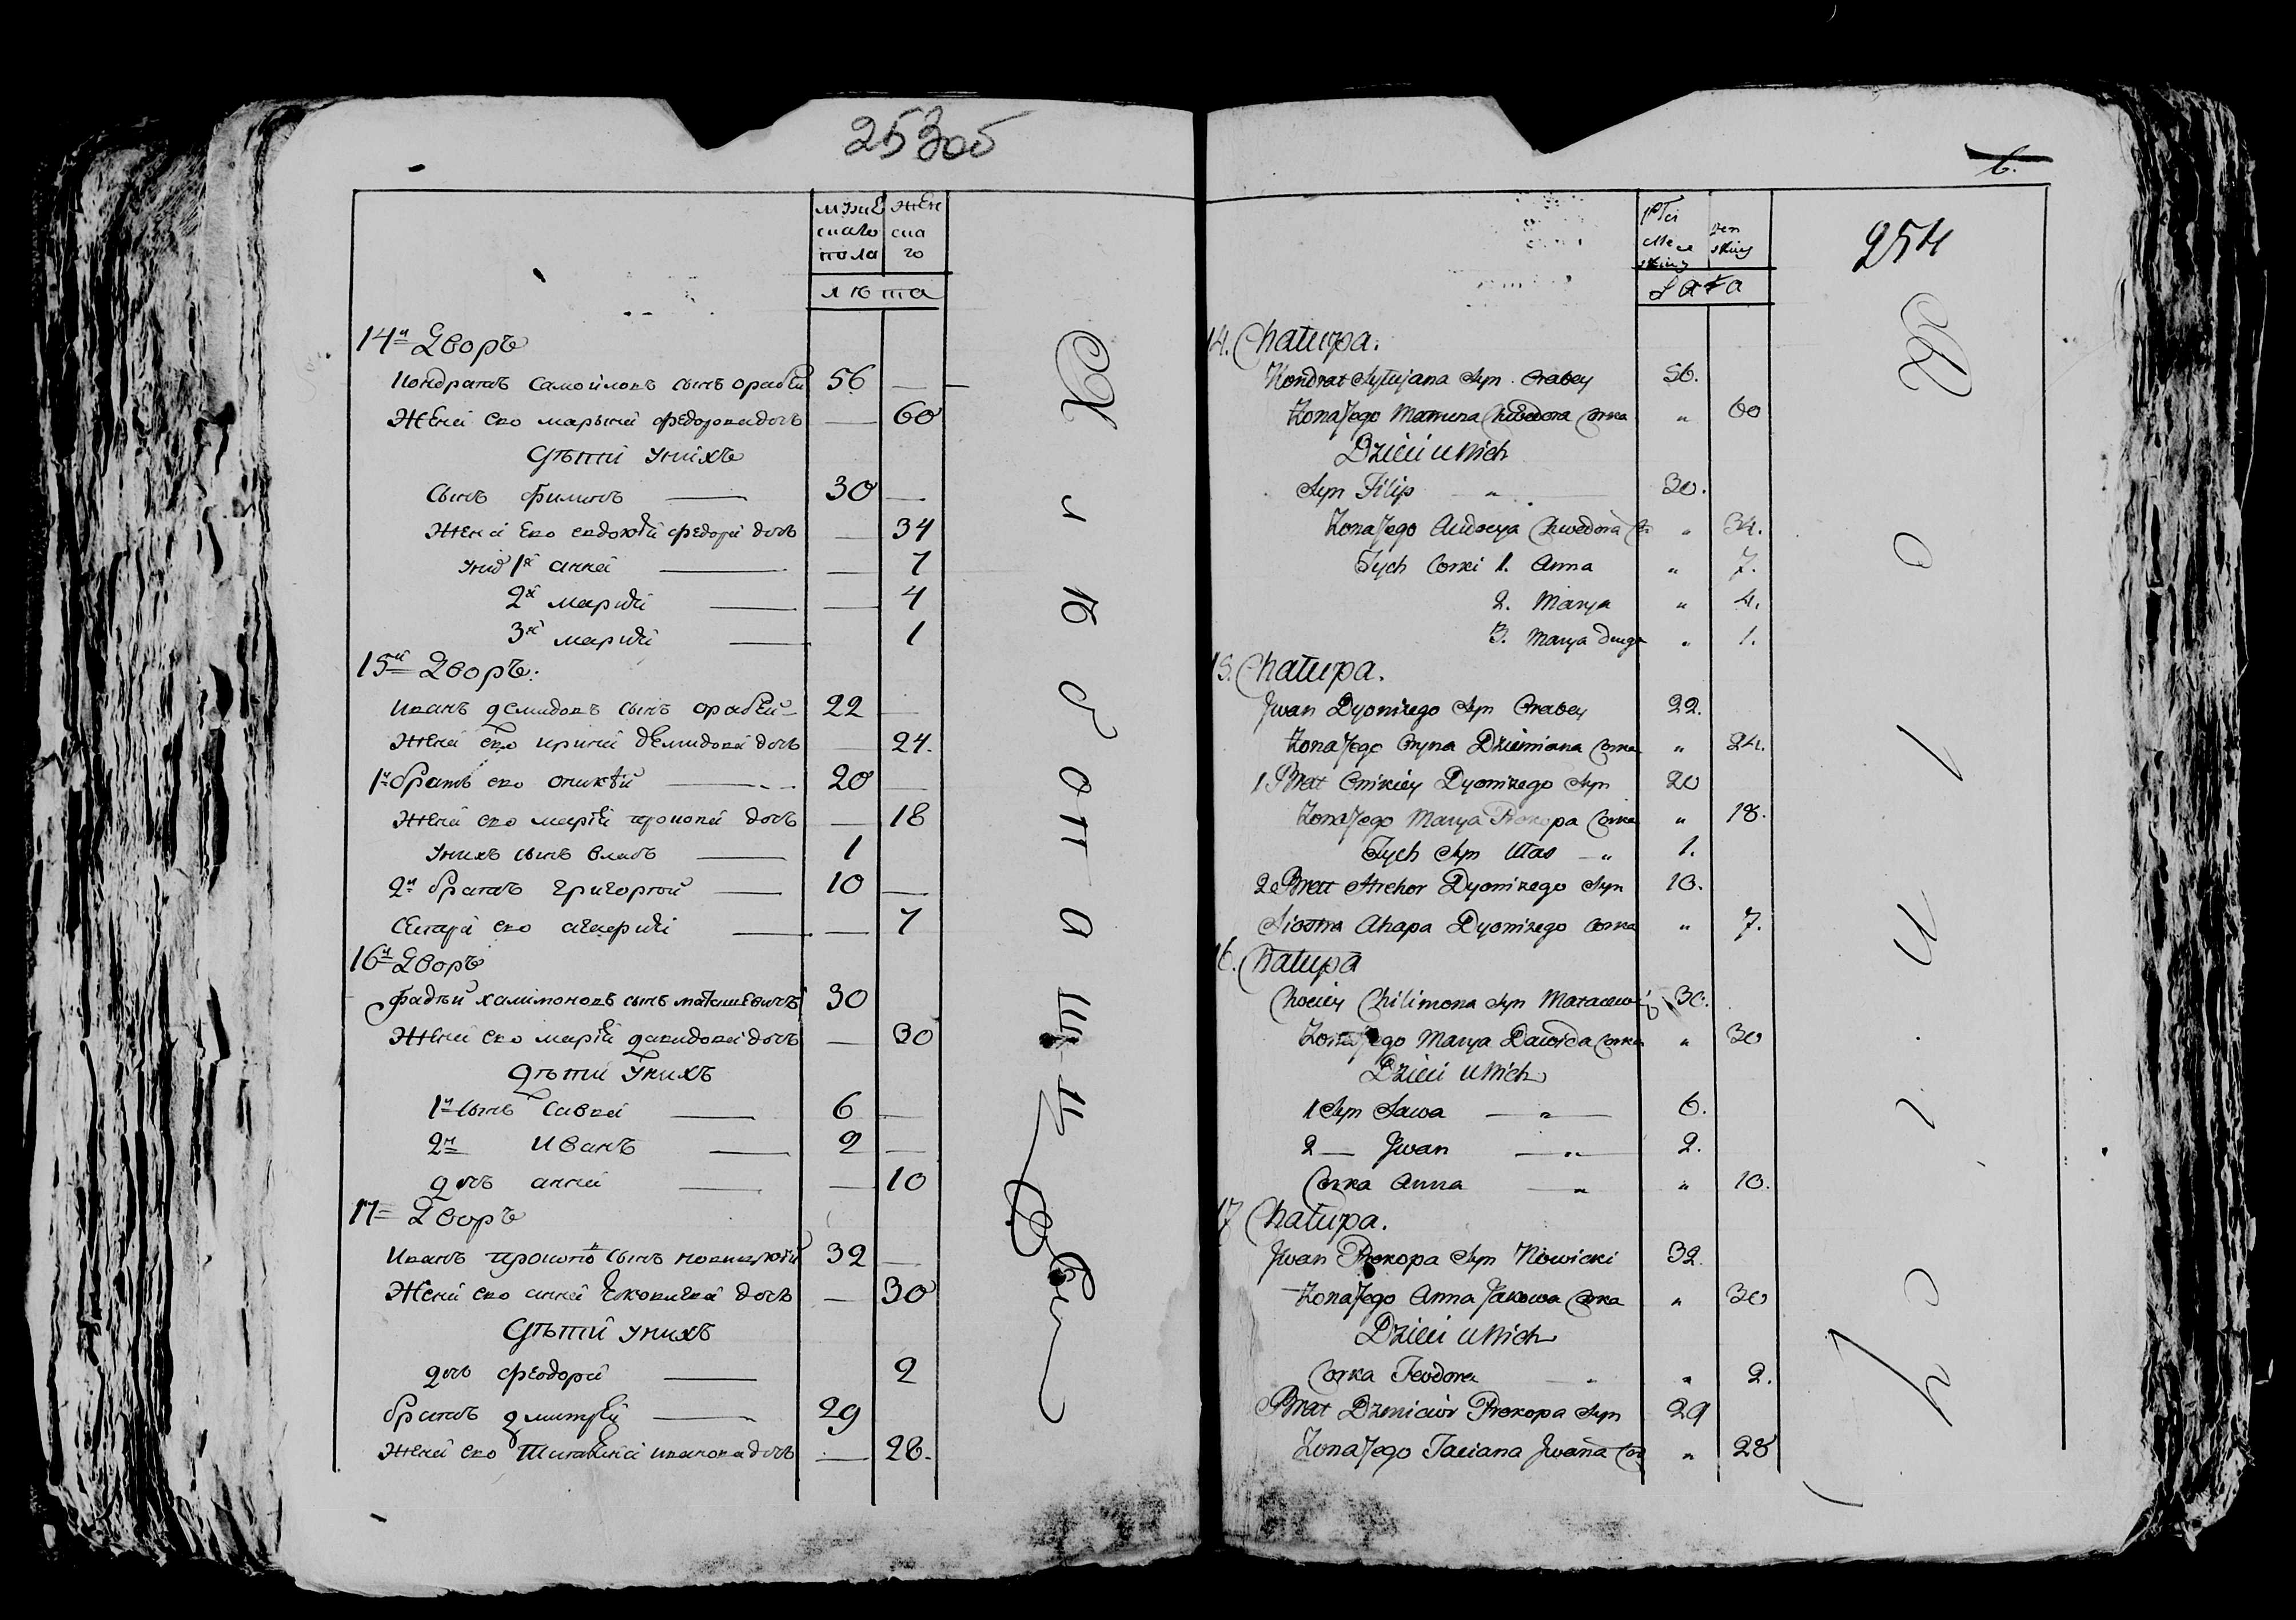 253об
мужескаго пола
женскаго
лѣта
14й Дворъ
Кондратъ Самойловъ сынъ орабей 56 —
Жена ево марына федорова дочь — 60
Дѣти у нихъ
сынъ филипъ — 30 —
жена ево евдокия федора дочь — 34
у нихъ 1я анна — 7
2я мария — 4
3я мария — 1
15й Дворъ:
иванъ демидовъ сынъ орабей 22 —
жена ево ирина демидова дочь — 24.
1й братъ ево оникѣй — 20 —
жена ево мария прокопа дочь — 18
у нихъ сынъ власъ — 1
2й братъ григорей — 10 —
сестра ево агафия — 7
16й Дворъ
фадѣй халимоновъ сынъ маташевичъ 30
жена ево мария давидова дочь — 30
Дѣти у нихъ
1й сынъ савка — 6 —
2й иванъ — 2 —
дочь анна — 10
17 Дворъ
иванъ прокопо сынъ новицкий 32 —
Жена ево анна Яковлева дочь — 30
Дѣти у нихъ
дочь феодора — 2
братъ дмитрей — 29
жена ево татьяна иванова дочь — 28.
Хлѣбопашц
6.
254
Płci Męskiey
Żenskiey
Lata
14. Chałupa.
Kondrat Syłujana Syn Orabey 56.
Żona Jego Maruna Chwedora Corka " 60
Dzieci u Nich
Syn Filip " 30.
Żona Jego Audocya Chwedora Co " 34.
Tych Corki 1. Anna " 7.
2. Marya " 4.
3. Marya druga " 1.
15. Chałupa.
Jwan Dyonizego Syn Orabey 22.
Żona Jego Oryna Dziemiana Corka " 24.
1 Brat Onikiey Dyonizego Syn 20
Żona Jego Marya Prokopa Corka " 18.
Tych Syn Ułas — " 1.
2 Brat Hrehor Dyonizego Syn 10.
Siostra Ahapa Dyonizego Corka " 7.
16. Chałupa
Chociey Chilimona Syn Matacewi 30.
Żona Jego Marya Dawida Corka " 30
Dzieci u Nich
1 Syn Sawa — " — 6.
2 — Jwan — " — 2.
Corka Anna — " " 10.
17 Chałupa.
Jwan Prokopa Syn Nowicki 32.
Żona Jego Anna Jakowa Corka " 30
Dzieci u Nich
Corka Teodora " 2.
Brat Dzmicior Prokopa Syn 29
Żona Jego Taciana Jwana Cor " 28